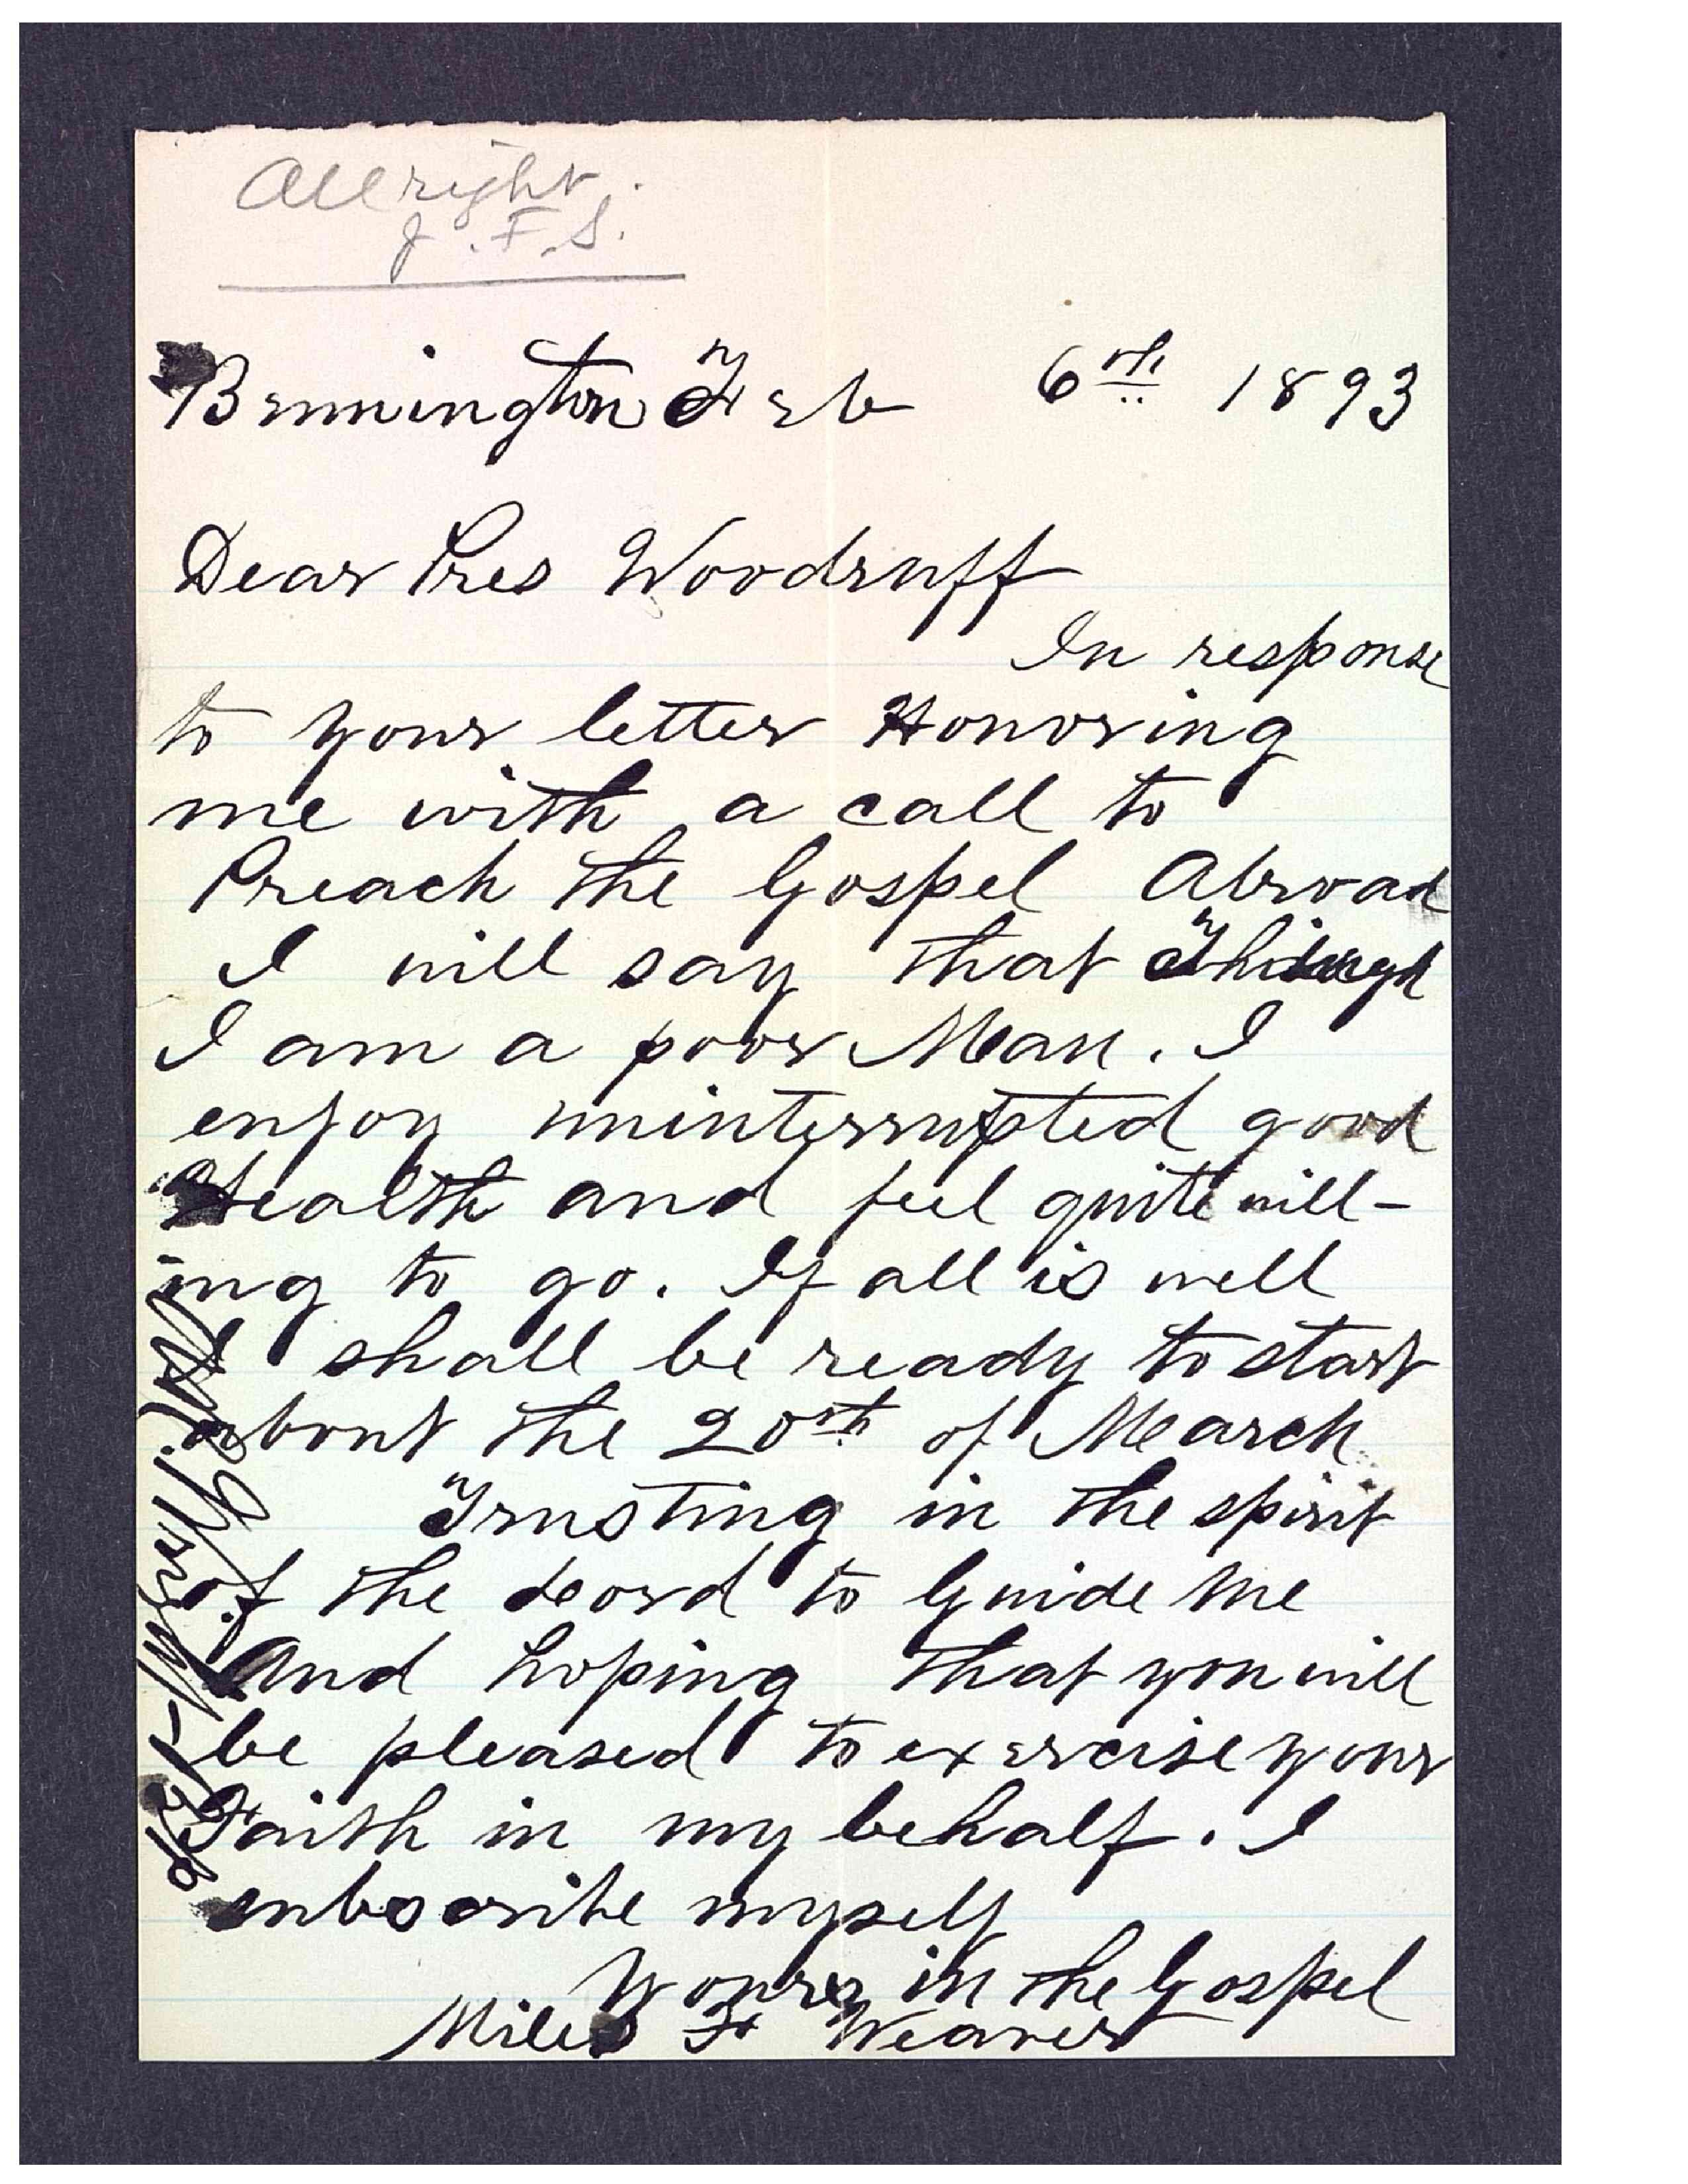 All right.
J. F. S.
Bennington Feb 6th 1893
Dear Pres Woodruff
In response
to your letter Honoring
me with a call to
Preach the Gospel Abroad
I will say that Though
I am a poor Man. I
enjoy uninterrupted good
Health and feel quite will-
ing to go. If all is well
I shall be ready to start
about the 20th of March
Trusting in the spirit
of the Lord to Guide me
And hoping that you will
be pleased to exercise your
Faith in my behalf. I
subscribe myself
Yours in the Gospel
Miles F Weaver